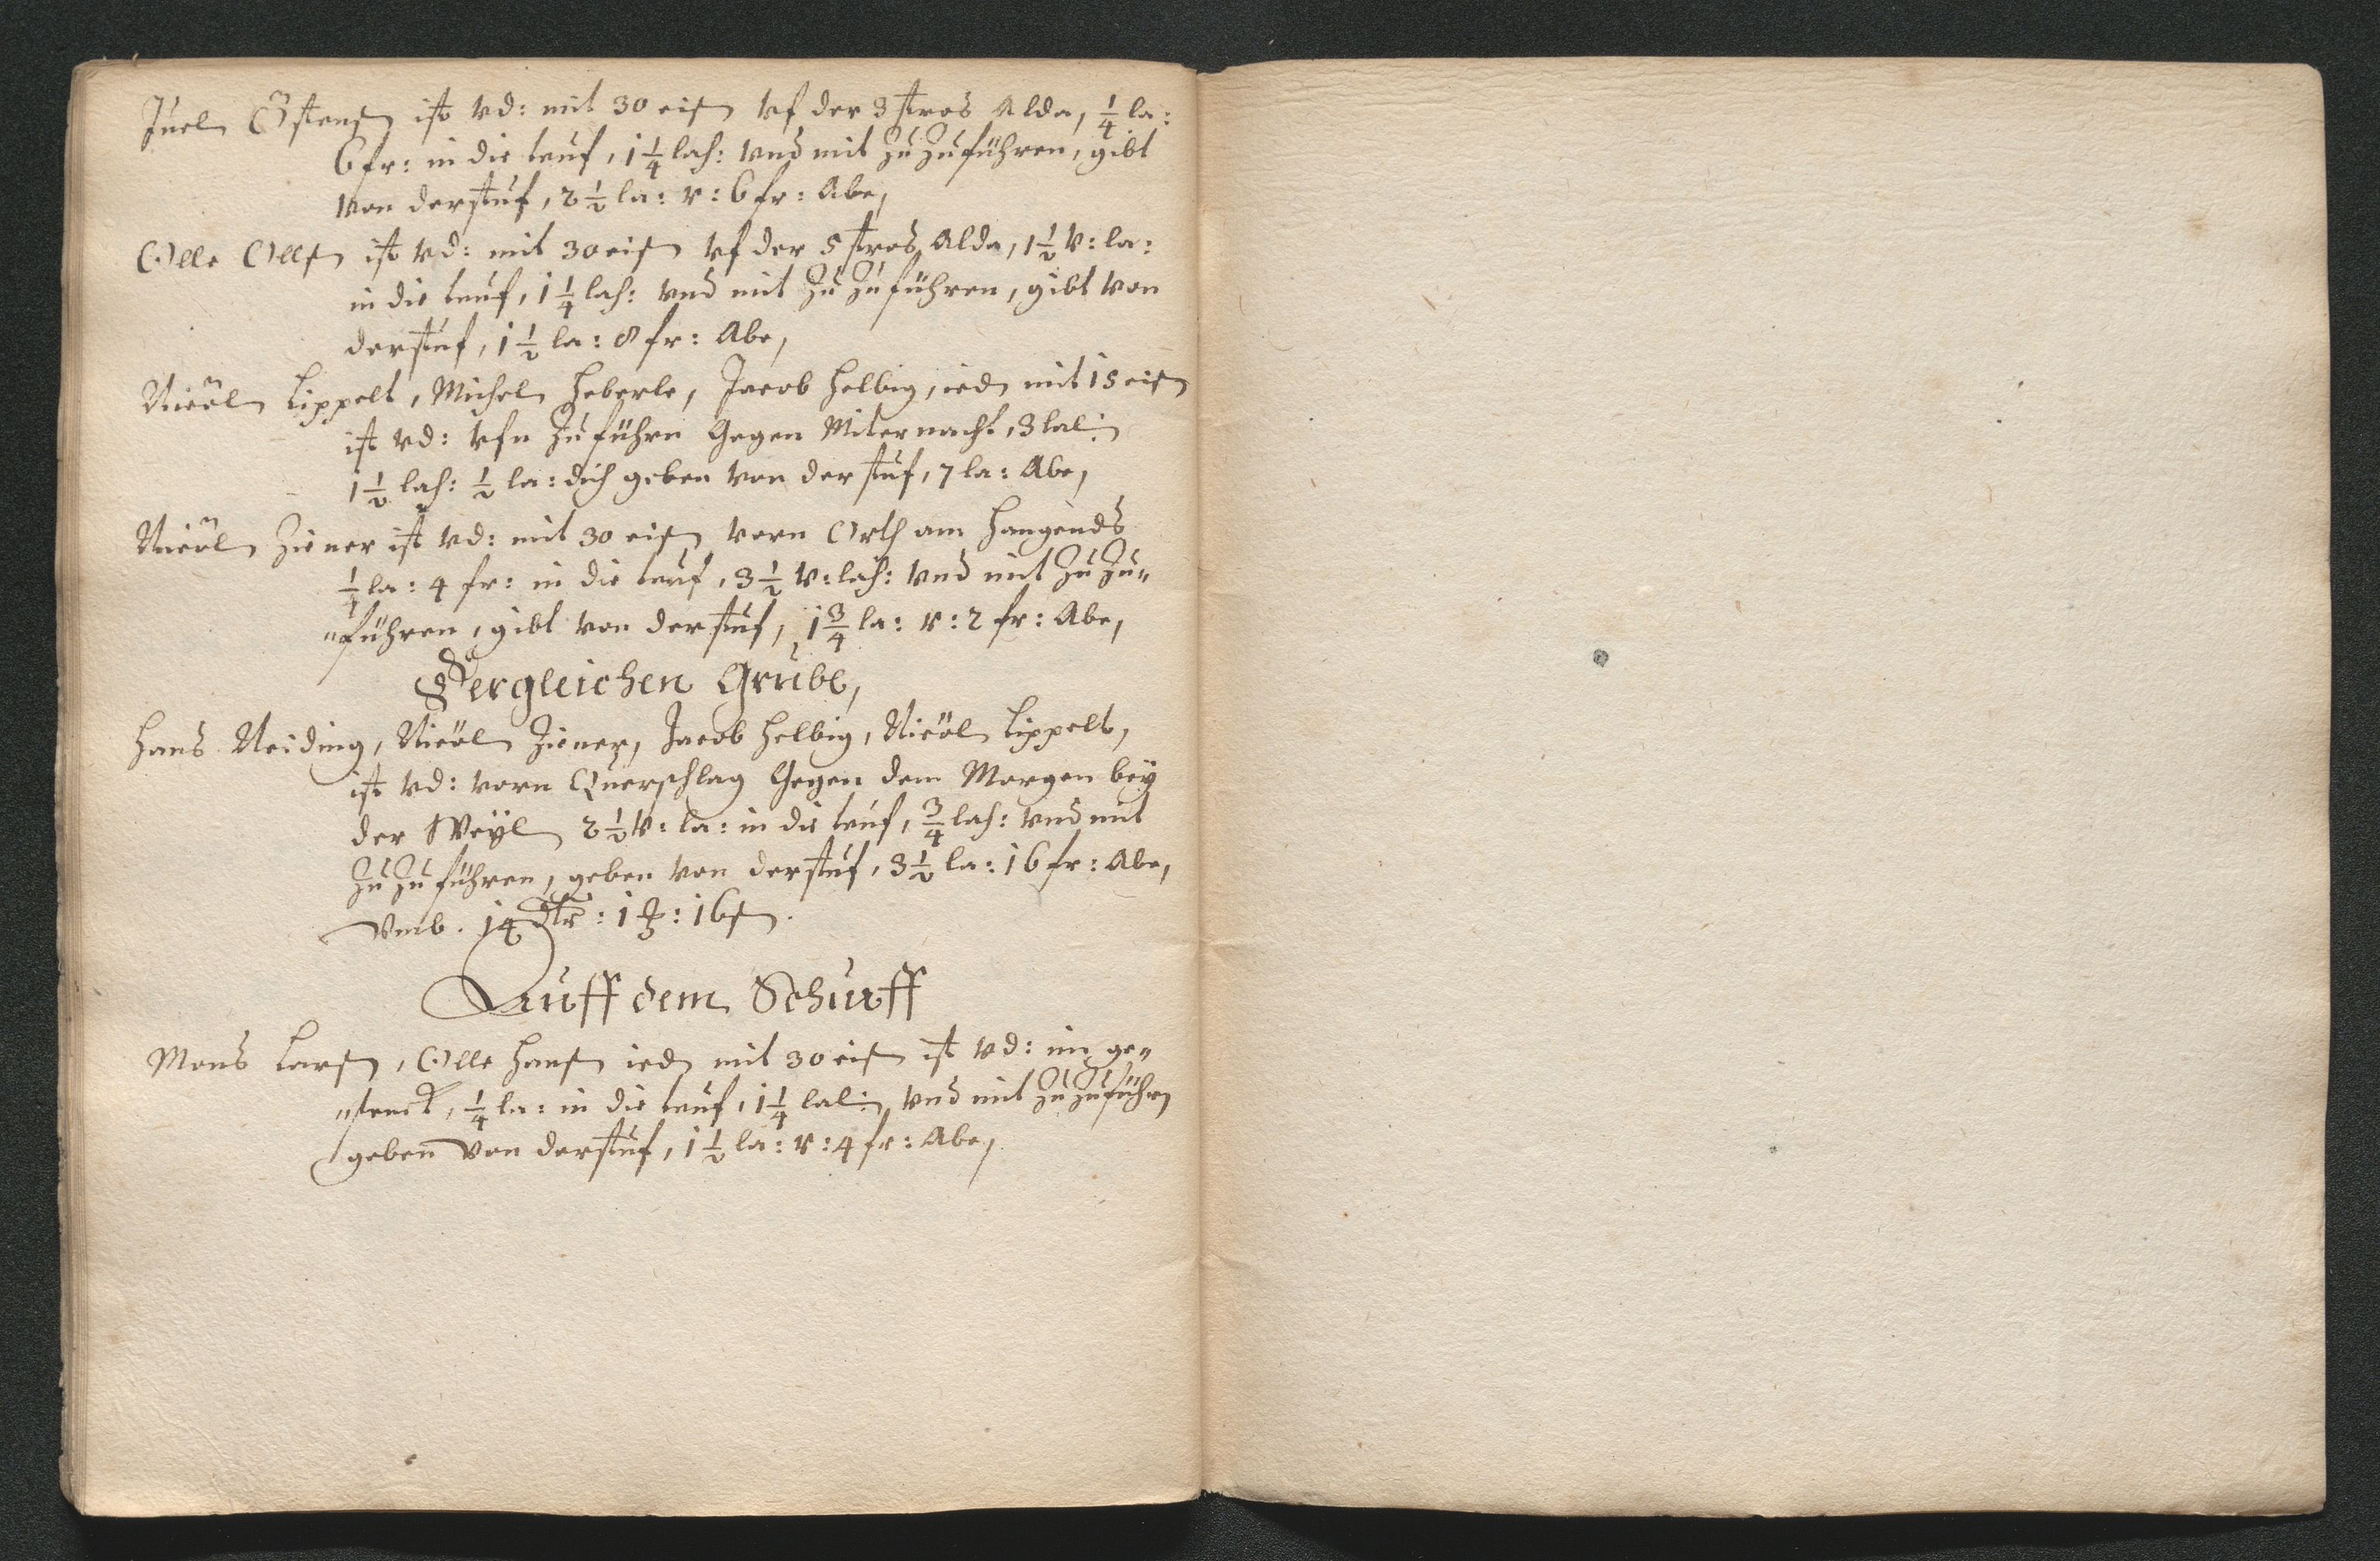 Juel Östensen ist vd: mit 30 eisen vf der 3 stros Alda, 1/4 la:
6 fr: in die teuf, 1 1/4 lach: vnd mit Zu Zuführen, gibt
von der stuf, 2 1/2 la: v: 6 fr: Abe,
Olle Ollsen ist vd: mit 30 eisen vf der 5 stros Alda, 1 1/2 v: la:
in die teuf, 1 1/4 lach: vnd mit Zu Zuführen, gibt von
der stuf, 1 1/2 la: 8 fr: Abe,
Nicöl Lippelt, Michel Heberle, Jacob Helbig, ied mit 15 eisen
ist vd: vfn Zuführn Gegen Miternacht, 3 lal:
1 1/2 lach: 1/2 la: dich geben von der stuf, 7 la: Abe,
Nicöl Ziener ist vd: mit 30 eisen vorn Orth am Hangends
1/4 la: 4 fr: in die teuf, 3 1/2 v: lach: vnd mit Zu Zu„
„führen, gibt von der stuf, 1 3/4 la: v: 2 fr: Abe,
Vergleichen Grube,
Hans Neiding, Nicöl Ziener, Jacob Helbig, Nicöl Lippelt,
ist vd: vorn Querschlag Gegen dem Morgen bey
der Weyl 2 1/2 v: la: in die teuf, 3/4 lach: vnd mit
Zu Zuführen, geben von der stuf, 3 1/2 la: 16 fr: Abe,
Vmb. 14 : 1 : 16
Auff dem Schurff
Mons Larsen, Olle Hansen ied mit 30 eisen ist vd: im ge„
„senck, 1/4 la: in die teuf, 1 1/4 lal: vnd mit Zu Zuführn
geben von der stuf, 1 1/2 la: v: 4 fr: Abe,